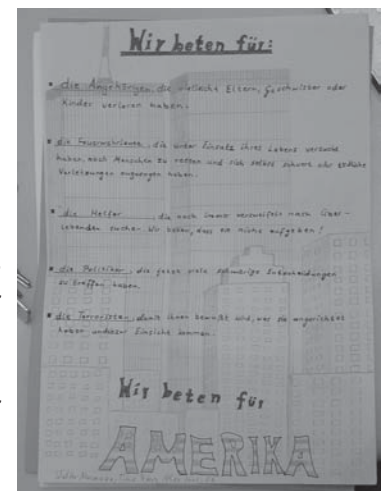 Wir beten für:
• die Angehörigen, die vielleicht Eltern, Geschwister oder
Kinder verloren haben.
• die Feuerwehrleute, die unter Einsatz ihres Lebens versucht
haben, noch Menschen zu retten und sich selbst schwere oder tödliche
Verletzungen zugezogen haben.
• die Helfer, die noch immer verzweifelt nach Über-
lebenden suchen. Wir beten, dass sie nicht aufgeben!
• die Politiker, die jetzt viele schwierige Entscheidungen
zu treffen haben.
• die Terroristen, damit ihnen bewußt wird, was sie angerichtet
haben und zur Einsicht kommen.
Wir beten für
AMERIKA